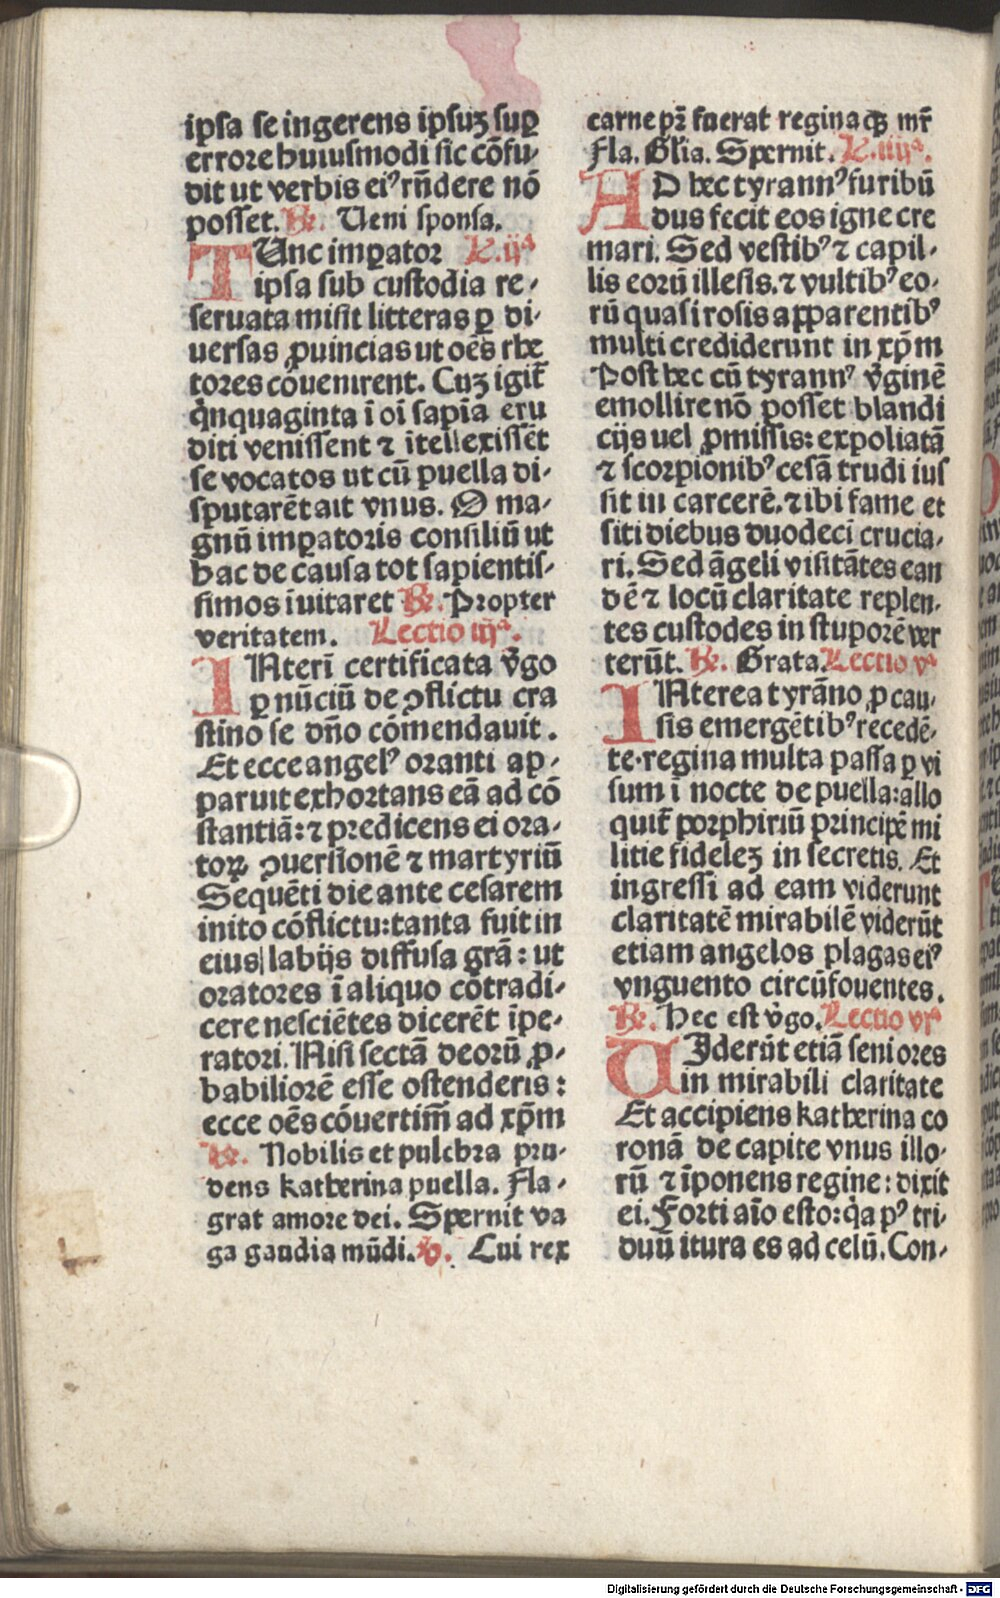 ipsa se ingerens ipsuʒ suꝑ
errore huiusmodi sic cōfu-
dit ut verbis eiꝰ rn̄dere nō
posset. ℞. Ueni sponsa.
TUnc imꝑator L.ijª
ipsa sub custodia re-
seruata misit litteras ꝑ di-
uersas ꝓuincias ut oēs rhe
tores cōuenirent. Cuʒ igit̄
qͥnquaginta ī oī sapīa eru
diti venissent ⁊ ītellexissēt
se vocatos ut cū puella di-
sputarēt ait vnus. O ma-
gnū imꝑatoris consiliū ut
hac de causa tot sapientis-
simos īuitaret ℞. Propter
veritatem. Lectio iijª.
INterī certificata v̄go
ꝑ nūciū de ꝯflictu cra
stino se dn̄o cōmendauit.
Et ecce angelꝰ oranti ap-
paruit exhortans eā ad cō
stantiā: ⁊ predicens ei ora-
toꝝ ꝯuersionē ⁊ martyriū
Sequēti die ante cesarem
inito cōflictu: tanta fuit in
eius labijs diffusa grā: ut
oratores ī aliquo cōtradi-
cere nesciētes dicerēt īpe-
ratori. Nisi sectā deorū ꝓ-
babiliorē esse ostenderis:
ecce oēs cōuertim̄ ad xp̄m
℞. Nobilis et pulchra pru-
dens katherina puella. Fla-
grat amore dei. Spernit va
ga gaudia mūdi. ℣. Cui rex
carne pr̄ fuerat reginaqꝫ mr̄
Fla. Gl̄ia. Spernit. L.iiijª.
AD hec tyrannꝰ furibū
dus fecit eos igne cre
mari. Sed vestibꝰ ⁊ capil-
lis eorū illesis. ⁊ vultibꝰ eo-
rū quasi rosis apparentibꝰ
multi crediderunt in xp̄m
Post hec cū tyrannꝰ v̄ginē
emollire nō posset blandi
cijs uel ꝓmissis: expoliatā
⁊ scorpionibꝰ cesā trudi ius
sit in carcerē. ⁊ ibi fame et
siti diebus duodecī crucia-
ri. Sed āgeli visitātes ean
dē ⁊ locū claritate replen-
tes custodes in stuporē ver
terūt. ℞. Grata. Lectio vª
INterea tyrāno ꝓ cau-
sis emergētibꝰ recedē-
te. regina multa passa ꝑ vi
sum ī nocte de puella: allo
quit̄ porphiriū principē mi
litie fideleʒ in secretis. Et
ingressi ad eam viderunt
claritatē mirabilē viderūt
etiam angelos plagas eiꝰ
vnguento circūfouentes.
℞. Hec est v̄go. Lectio vjª
UIderūt etiā seniores
in mirabili claritate
Et accipiens katherina co
ronā de capite vnus illo-
rū ⁊ īponens regine: dixit
ei. Forti aīo esto: qͥa pꝰ tri-
duū itura es ad celū. Con-
Digitalisierung gefördert durch die Deutsche Forschungsgemeinschaft - DFG